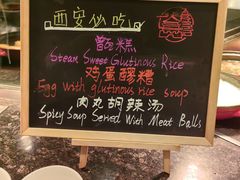 西安小吃
甑糕
Steam Sweet Glutinous Rice
鸡蛋醪糟
Egg with glutinous rice soup
肉丸胡辣汤
Spicy Soup Served With Meat Balls